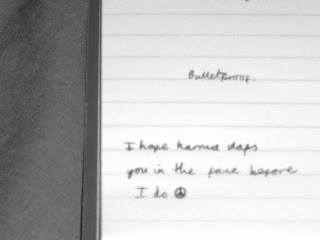 Bulletproof.
I hope karma slaps
you in the face before
I do ☮